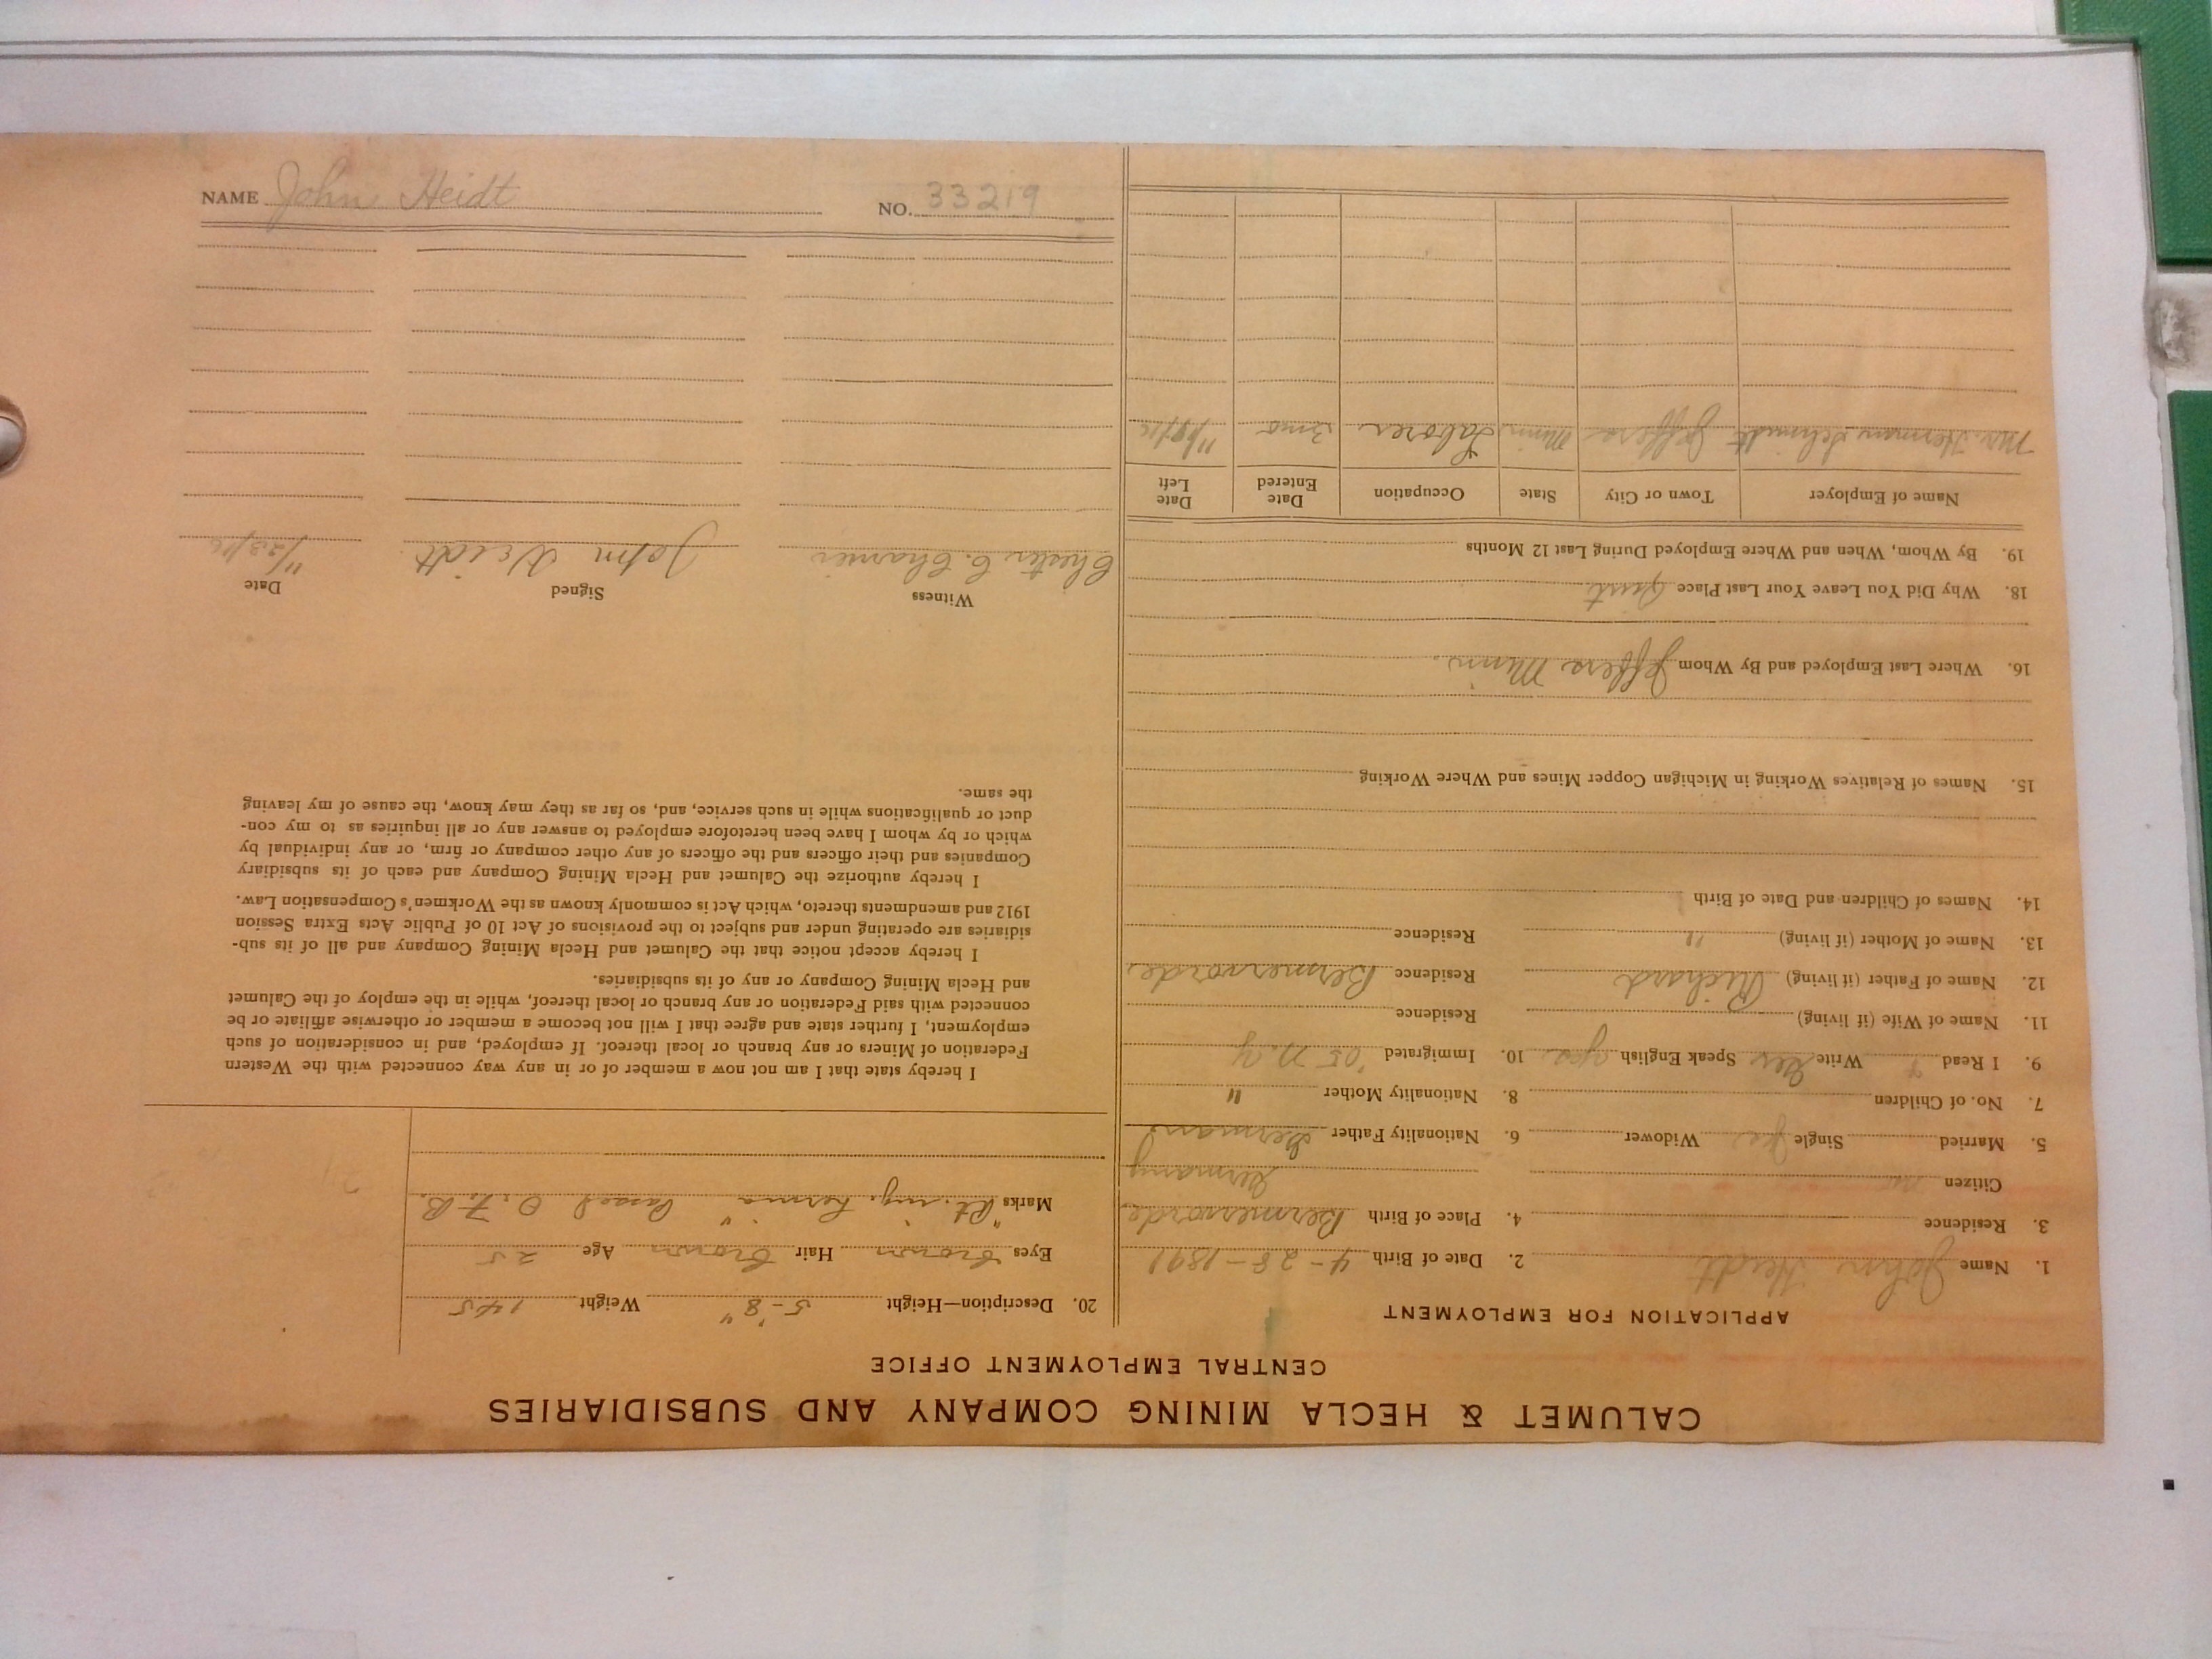 NAME John Heidt NO. 33219
CALUMET & HECLA MINING COMPANY AND SUBSIDIARIES
CENTRAL EMPLOYMENT OFFICE
APPLICATION FOR EMPLOYMENT
1. Name John Heidt 2. Date of Birth 4-28-1891
3. Residence 4. Place of Birth Bermervorde
Citizen no Germany
5. Married Single yes Widower 6. Nationality Father German
7. No. of Children 8. Nationality Mother "
9. I Read Write Speak English yes 10. Immigrated '05 N.Y
11. Name of Wife (if living) Residence
12. Name of Father (if living) Richard Residence Bermervorde
13. Name of Mother (if living) " Residence
14. Names of Children and Date of Birth
15. Names of Relatives Working in Michigan Copper Mines and Where Working
16. Where Last Employed and By Whom Jeffers Minn.
18. Why Did You Leave Your Last Place Quit
19. By Whom, When and Where Employed During Last 12 Months
Name of Employer Town or City State Occupation Date Entered Date Left
Mr. Herman Schmidt Jeffers Minn Laborer 3 mo
20. Description—Height 5-8" Weight 145
Eyes brown Hair brown Age 25
Marks "Rt. ing. hernia" Passed O.F.B.
I hereby state that I am not now a member of or in any way connected with the Western
Federation of Miners or any branch or local thereof. If employed, and in consideration of such
employment, I further state and agree that I will not become a member or otherwise affiliate or be
connected with said Federation or any branch or local thereof, while in the employ of the Calumet
and Hecla Mining Company or any of its subsidiaries.
I hereby accept notice that the Calumet and Hecla Mining Company and all of its sub-
sidiaries are operating under and subject to the provisions of Act 10 of Public Acts Extra Session
1912 and amendments thereto, which Act is commonly known as the Workmen's Compensation Law.
I hereby authorize the Calumet and Hecla Mining Company and each of its subsidiary
Companies and their officers and the officers of any other company or firm, or any individual by
which or by whom I have been heretofore employed to answer any or all inquiries as to my con-
duct or qualifications while in such service, and, so far as they may know, the cause of my leaving
the same.
Witness Signed Date
Chester C. John Heidt 11/23/16